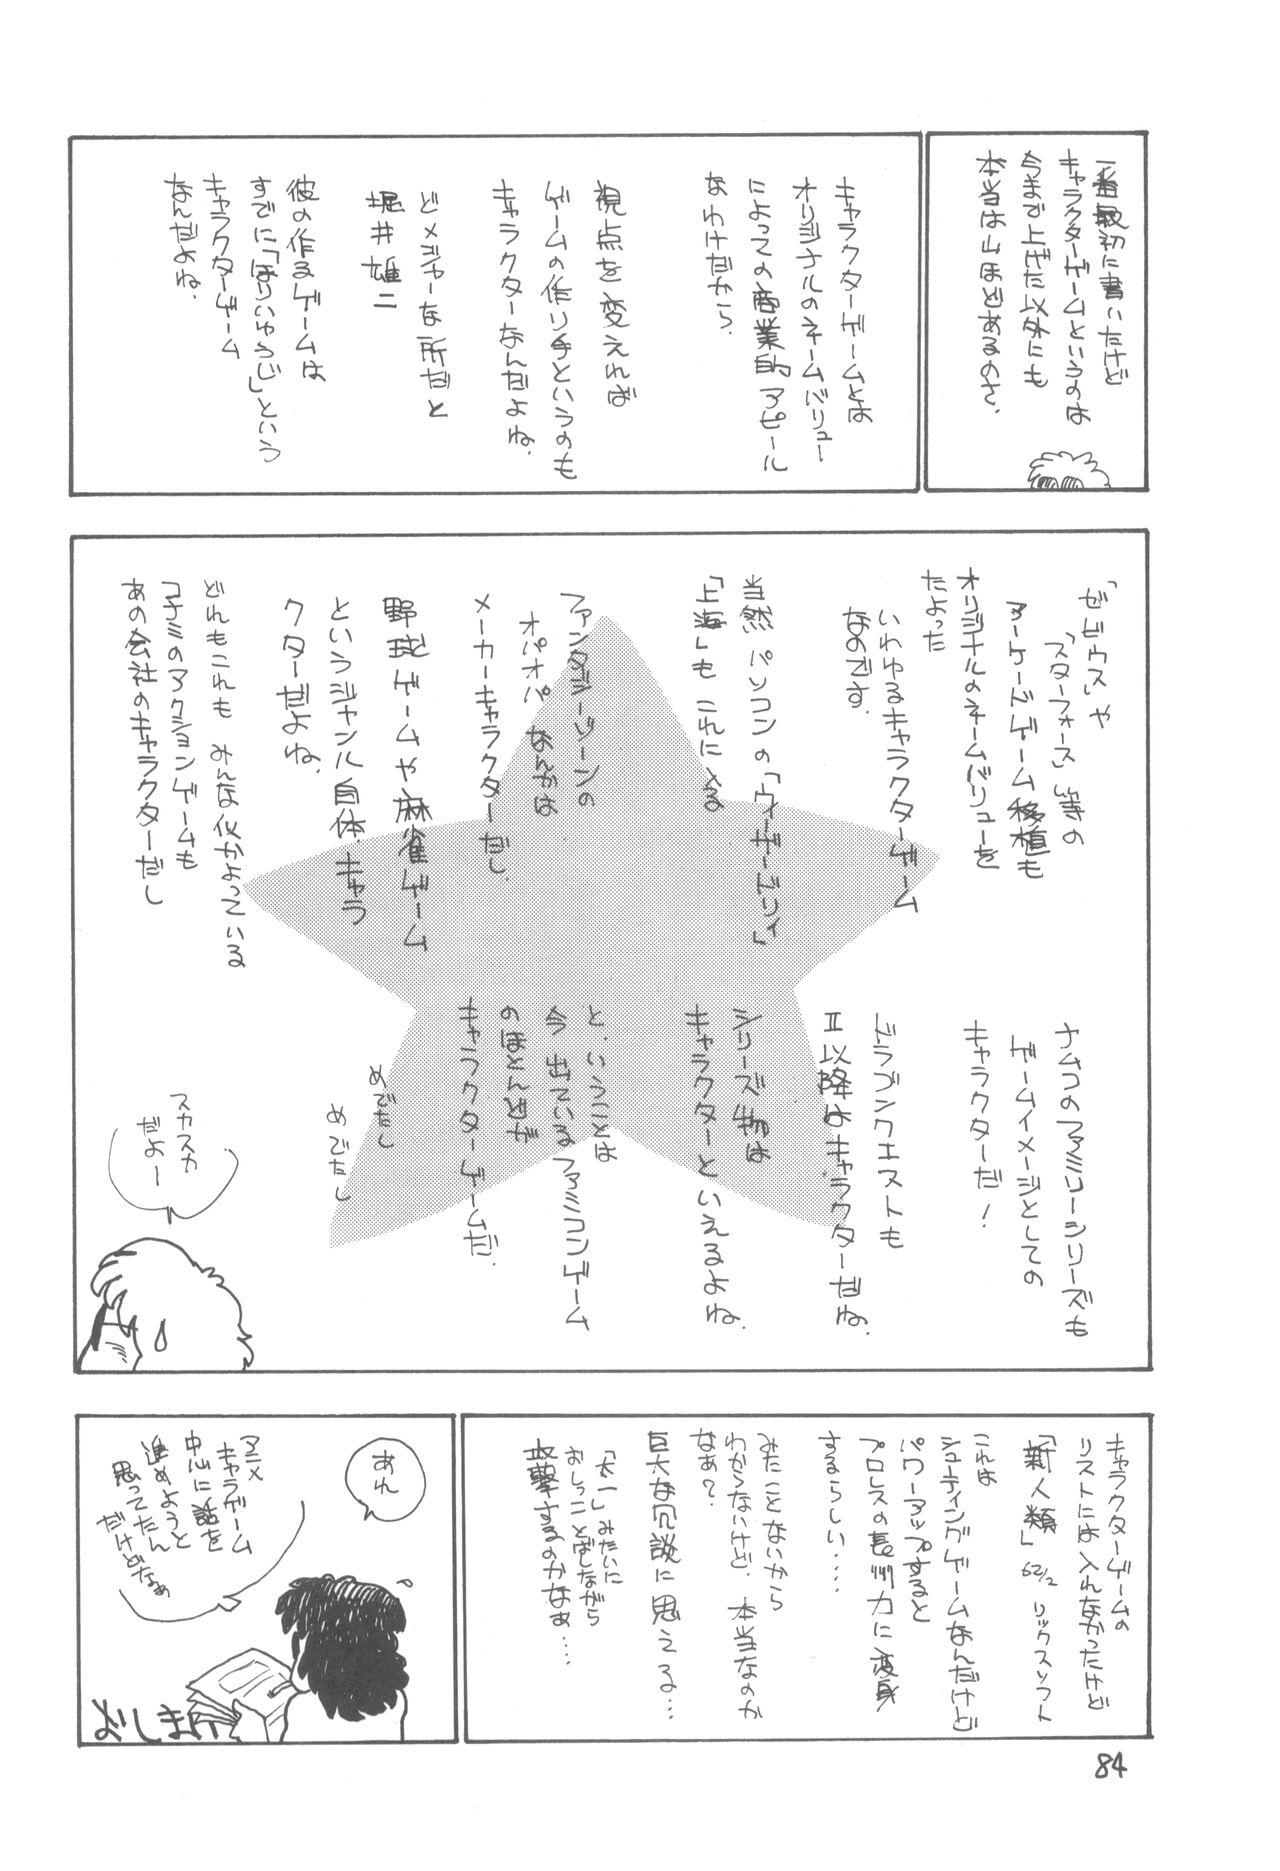 一番最初に書いたけど
キャラクターゲームというのは
今まで上げた以外にも
本当は山ほどあるのさ、
キャラクターゲームとは
オリジナルのネームバリュー
によっての商業的アピール
なわけだから、
視点を変えれば
ゲームの作り手というのも
キャラクターなんだよね、
どメジャーな所だと
堀井雄二
彼の作るゲームは
すでに「ほりいゆうじ」という
キャラクターゲーム
なんだよね、
「ゼビウス」や
「スターフォース」等の
アーケードゲーム移植も
オリジナルのネームバリューを
たよった
いわゆるキャラクターゲーム
なのです、
当然パソコンの「ウィザードリィ」
「上海」もこれに入る
ファンタジーゾーンの
オパオパなんかは
メーカーキャラクターだし、
野球ゲームや麻雀ゲーム
というジャンル自体、キャラ
クターだよね、
どれもこれもみんな似かよっている
コナミのアクションゲームも
あの会社のキャラクターだし
ナムコのファミリーシリーズも
ゲームイメージとしての
キャラクターだ!
ドラゴンクエストも
Ⅱ以降はキャラクターだね、
シリーズ物は
キャラクターといえるよね、
と、いうことは
今出ているファミコンゲーム
のほとんどが
キャラクターゲームだ、
めでたし
めでたし
スカスカ
だよー
キャラクターゲームの
リストには入れなかったけど
「新人類」62/2 リックスソフト
これは
シューティングゲームなんだけど
パワーアップすると
プロレスの長州力に変身
するらしい‥‥
みたことないから
わからないけど、本当なのか
なぁ?
巨大な冗談に思える‥‥
「太一」みたいに
おしっことばしながら
攻撃するのかなぁ‥‥
あれ
アニメ
キャラゲーム
中心に話を
進めようと
思ってたん
だけどなぁ
おしまい
84